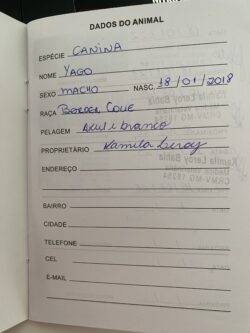 DADOS DO ANIMAL
ESPÉCIE CANINA
NOME YAGO
SEXO MACHO NASC. 18/01/2018
RAÇA BORDER COLIE
PELAGEM Azul e branco
PROPRIETÁRIO Kamila Leroy
ENDEREÇO
BAIRRO
CIDADE
TELEFONE
CEL
E-MAIL
Kamila Leroy Bahia
CRMV-MG 18284